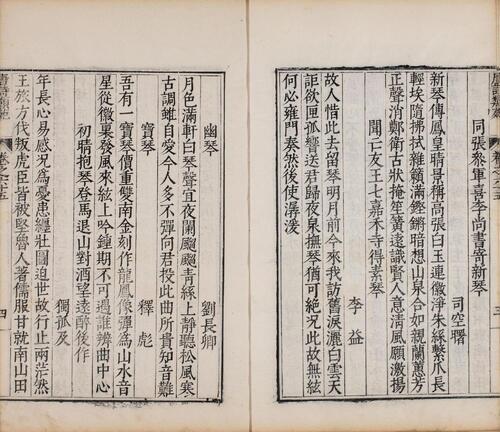 同張參軍喜李尚書寄新琴
司空曙
新琴傳鳳皇晴景稱高張白玉連徽淨朱絲繫爪長
輕埃隨拂拭雜籟滿鏗鏘暗想山泉合如親蘭蕙芳
正聲消鄭衛古狀掩笙簧遠識賢人意清風願激揚
聞亡友王七嘉禾寺得素琴
李益
故人惜此去留琴明月前今來我訪舊淚灑白雲天
詎欲匣孤響送君歸夜泉撫琴猶可絶況此故無絃
何必雍門奏然後使潺湲
三
幽琴
劉長卿
月色滿軒白琴聲宜夜闌飀飀青絲上靜聽松風寒
古調雖自愛今人多不彈向君投此曲所貴知音難
寶琴
釋彪
吾有一寶琴價重雙南金刻作龍鳳像彈爲山水音
星從徽裏發風來絃上吟鐘期不可遇誰辨曲中心
初晴抱琴登馬退山對酒望遠醉後作
獨孤及
年長心易感況爲憂患纏壯圖迫世故行止兩茫然
王旅方伐叛虎臣皆被堅魯人著儒服甘就南山田
四